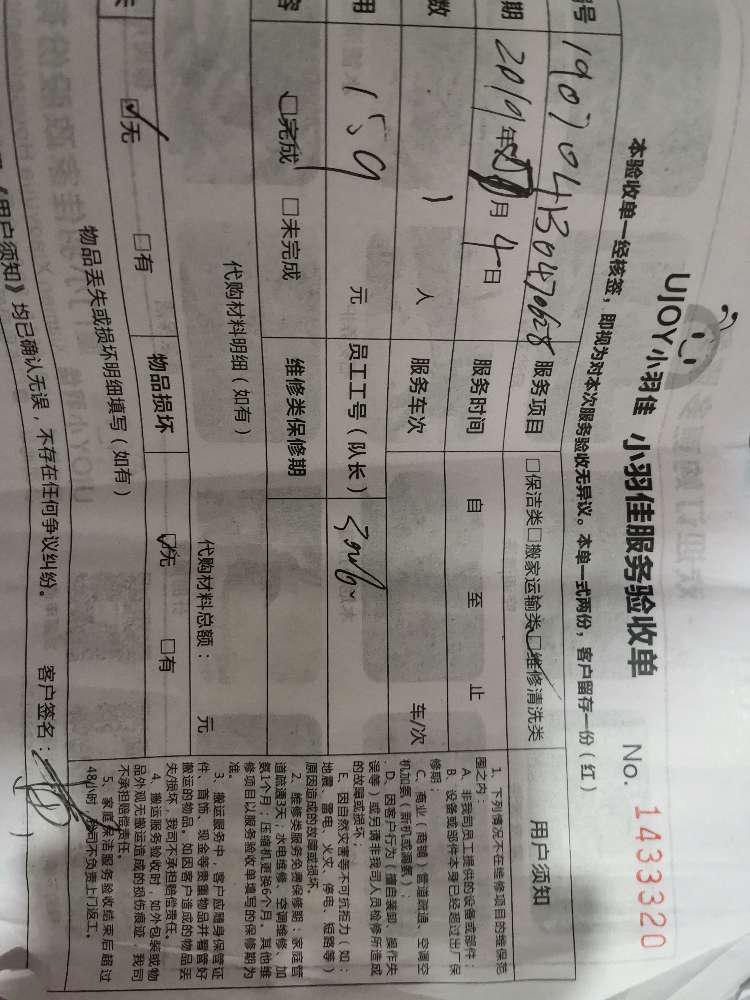 UJOY小羽佳 小羽佳服务验收单 No. 1433320
本验收单一经核签，即视为对本次服务验收无异议。本单一式两份，客户留存一份（红）
号 190704130470628 服务项目 □保洁类□搬家运输类☑维修清洗类
期 2019年 月4日 服务时间 自 至 止
数 1人 服务车次 车/次
用 159元 员工工号（队长）
容 ☑完成 □未完成 维修类保修期
代购材料明细（如有） 代购材料总额： 元
失 ☑无 □有 物品损坏 ☑无 □有
物品丢失或损坏明细填写（如有）
《用户须知》均已确认无误，不存在任何争议纠纷。 客户签名：
用户须知
1、下列情况不在维修项目的维保范
围之内：
A、非我司员工提供的设备或部件；
B、设备或部件本身已经超过出厂保
修期；
C、商业/商铺/管道疏通、空调空
机加氨（新机或漏氨）；
D、因客户行为（擅自装卸、操作失
误等）或另请非我司人员检修所造成
的故障或损坏；
E、因自然灾害等不可抗拒力（如：
地震、雷电、火灾、停电、短路等）
原因造成的故障或损坏。
2、维修类服务免费保修期：家庭管
道疏通3天；水电维修、空调维修、加
氨1个月；压缩机更换6个月。其他维
修项目以服务验收单填写的保修期为
准。
3、搬运服务中，客户应随身保管证
件、首饰、现金等贵重物品并看管好
搬运的物品。如因客户造成的物品丢
失/损坏，我司不承担赔偿责任。
4、搬运服务验收时，如外包装或物
品外观无搬运造成的损伤痕迹，我司
不承担赔偿责任。
5、家庭保洁服务验收结束后超过
48小时，我司不负责上门返工。